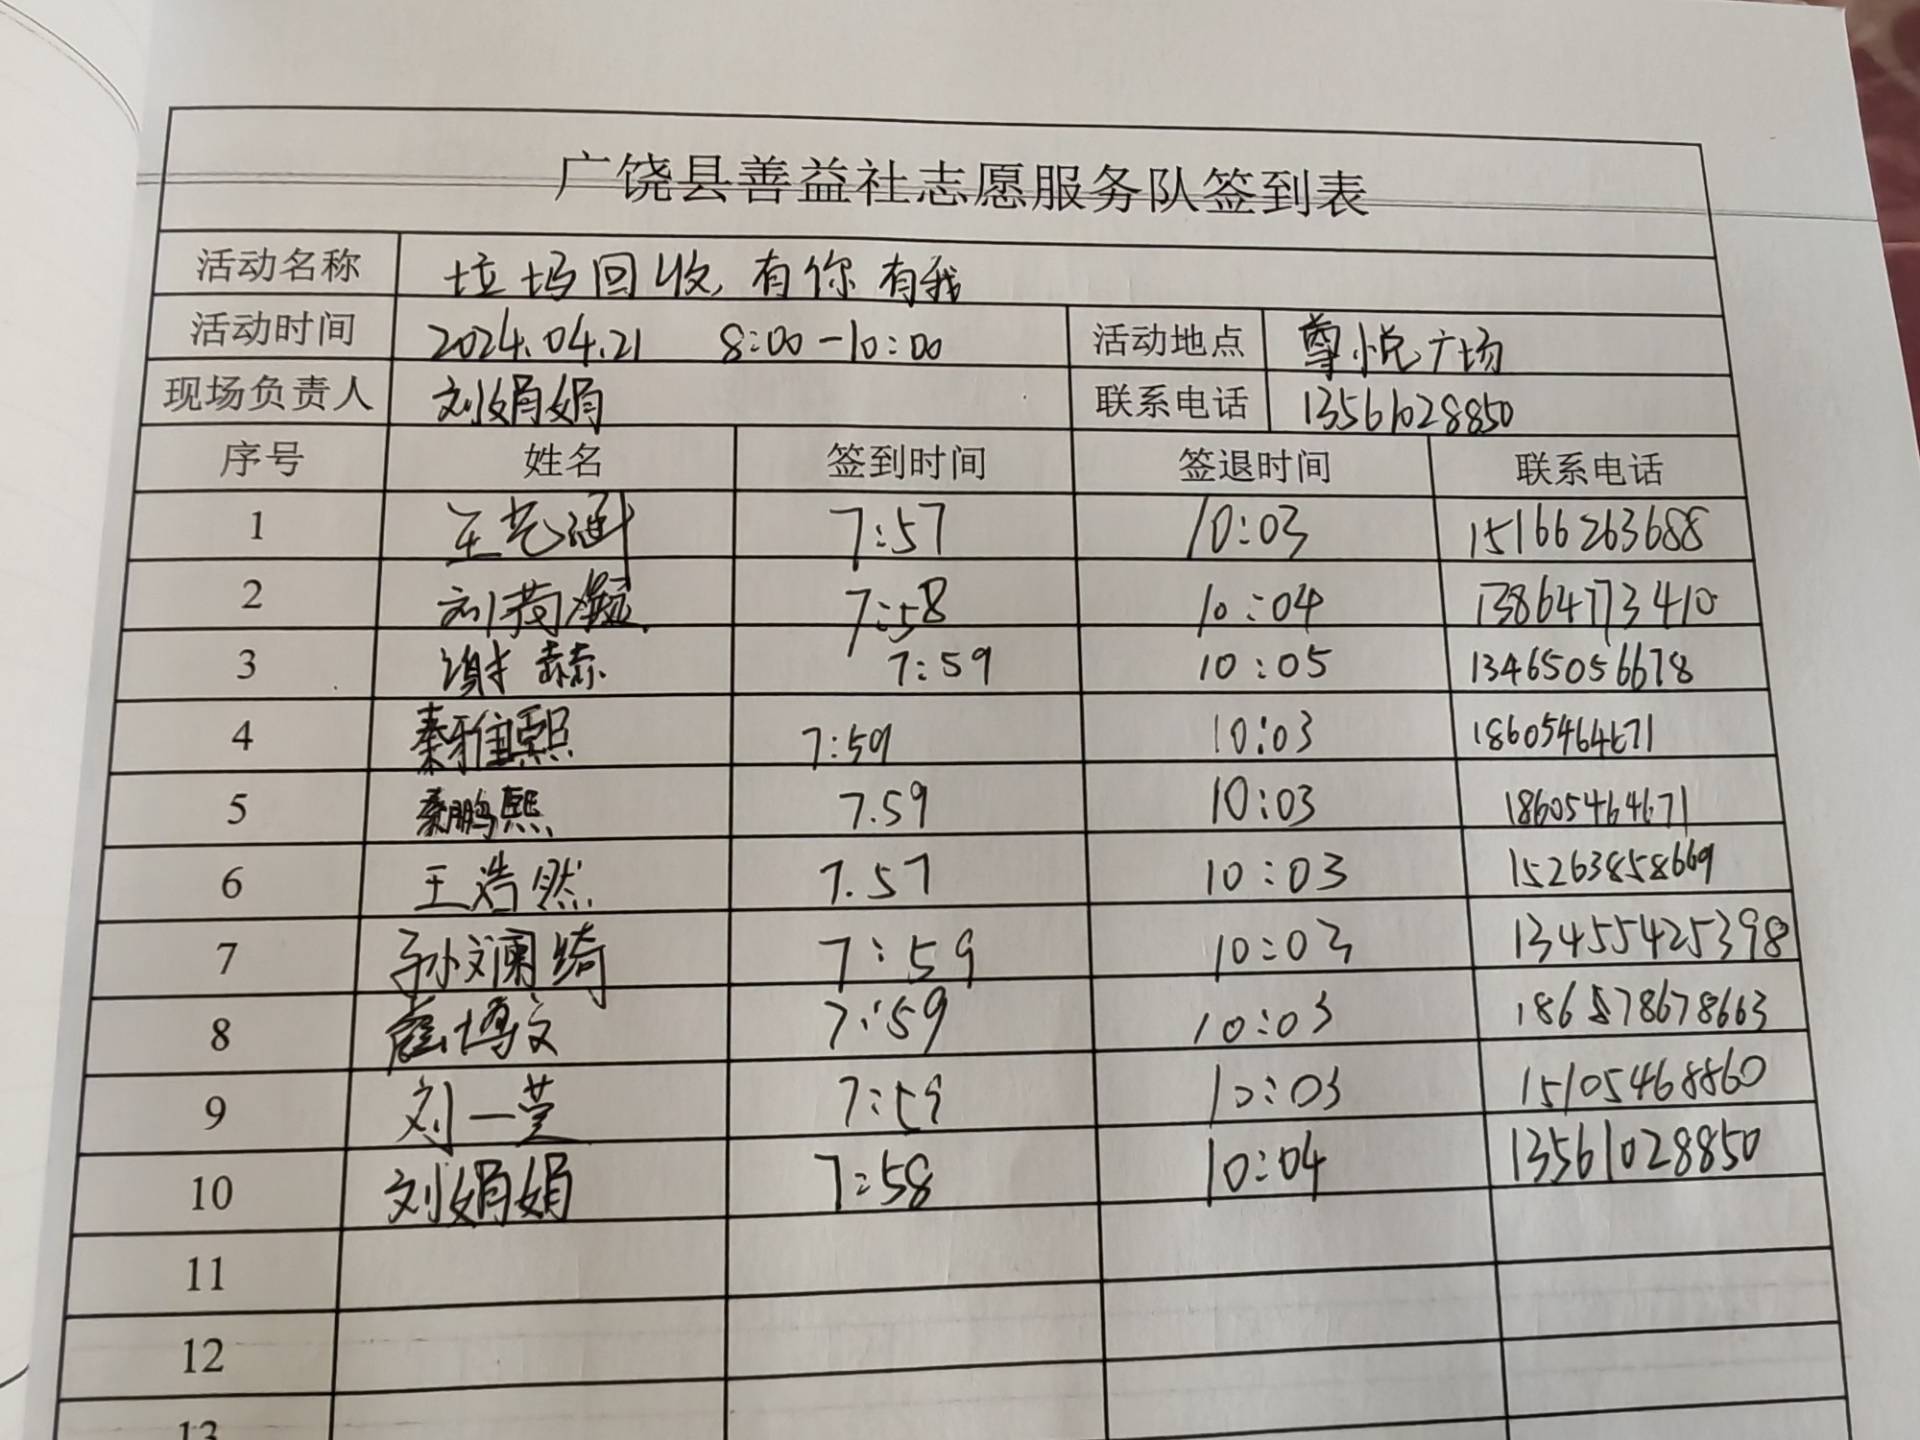 广饶县善益社志愿服务队签到表
活动名称 垃圾回收,有你有我
活动时间 2024.04.21 8:00-10:00 活动地点 尊悦广场
现场负责人 刘娟娟 联系电话 13561028850
序号 姓名 签到时间 签退时间 联系电话
1 王艺涵 7:57 10:03 15166263688
2 刘芮凝 7:58 10:04 13864773410
3 谢赫 7:59 10:05 13465056678
4 秦雅熙 7:59 10:03 18605464671
5 秦鹏熙 7.59 10:03 18605464671
6 王浩然 7.57 10:03 15263858669
7 孙文澜绮 7:59 10:03 13455425398
8 博文 7:59 10:03
9 刘一萱 7:59 10:03 15105468860
10 刘娟娟 7:58 10:04 13561028850
11
12
13